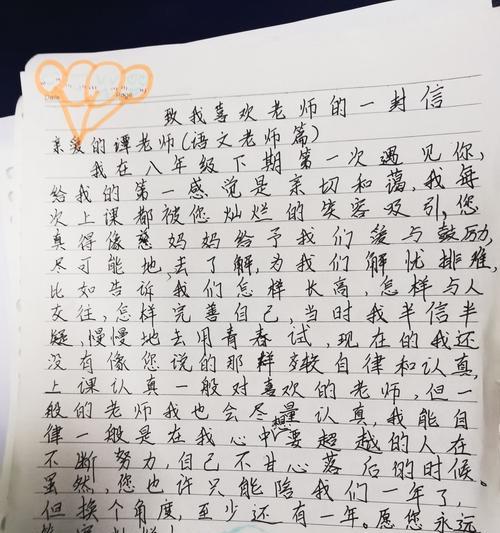 Date
Page
致我喜欢老师的一封信
亲爱的谭老师(语文老师篇)
我在八年级下期第一次遇见你,
给我的第一感觉是亲切和蔼,我每
次上课都被您灿烂的笑容吸引,您
真得像慈妈妈给予我们爱与鼓励,
尽可能地,去了解,为我们解忧排难,
比如告诉我们怎样长高,怎样与人
交往,怎样完善自己,当时我半信半
疑,慢慢地去用青春试,现在的我还
没有像您说的那样自律和认真,
上课认真一般对喜欢的老师,但一
般的老师我也会尽量认真,我能自
律一般是在我心中想要超越的人在
不断努力,自己不甘心落后的时候。
虽然,您也许只能陪我们一年了,
但换个角度,至少还有一年。愿您永远